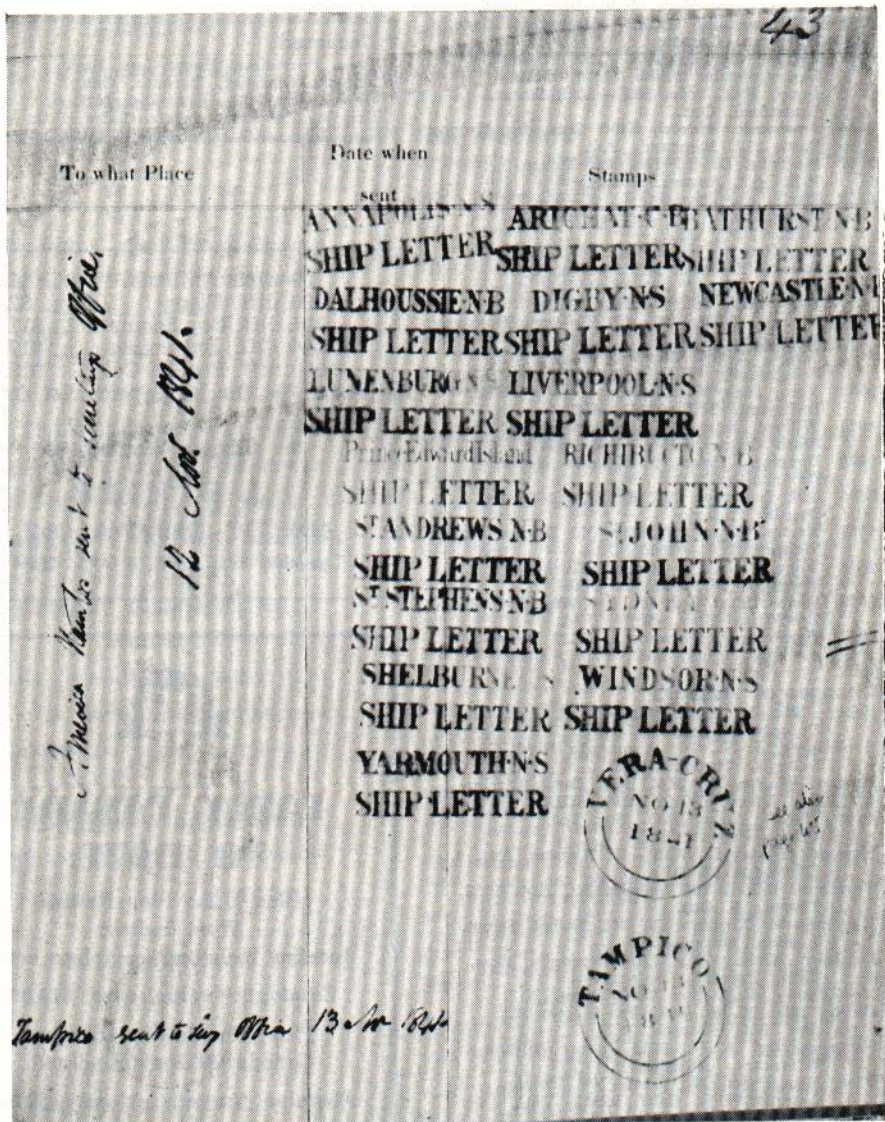 43
To what Place
Date when
sent
Stamps
ANNAPOLIS·N·S ARICHAT·C·B BATHURST·N·B
SHIP LETTER SHIP LETTER SHIP LETTER
DALHOUSSIE·N·B DIGBY·N·S NEWCASTLE·N·B
SHIP LETTER SHIP LETTER SHIP LETTER
LUNENBURG N S LIVERPOOL·N·S
SHIP LETTER SHIP LETTER
Prince Edward Island RICHIBUCTO N B
SHIP LETTER SHIP LETTER
ST ANDREWS N·B ST JOHN·N·B
SHIP LETTER SHIP LETTER
ST STEPHENS·N·B SYDNEY
SHIP LETTER SHIP LETTER
SHELBURNE S WINDSOR·N·S
SHIP LETTER SHIP LETTER
YARMOUTH·N·S
SHIP LETTER
VERA-CRUZ
NO 13
1841
see also
page
TAMPICO
NO 13
1841
America sent to Secretarys Office.
12 Nov 1841.
Tampico sent to Secy Office 13 Nov 1841